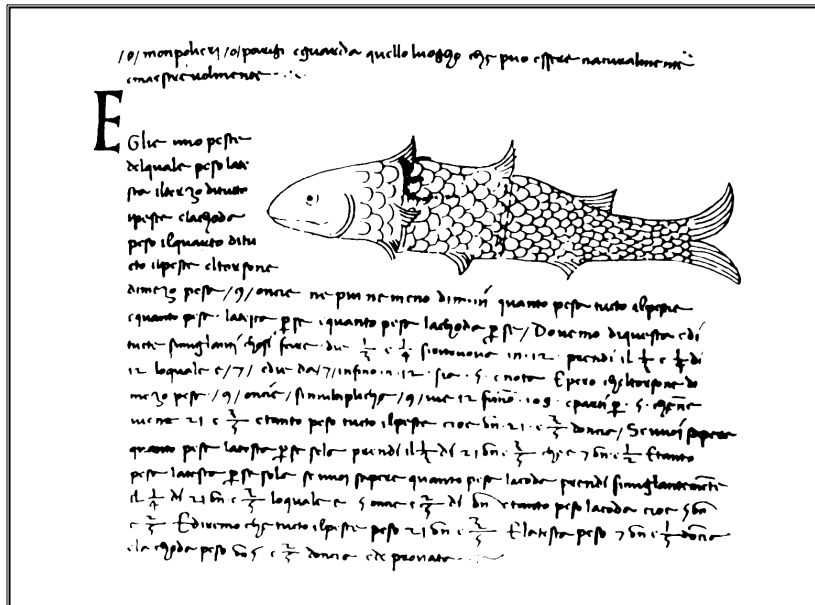 /o/ monpolieri /o/ parigi eguarda quello luogho che puo essere naturalmente
emaestrevolmente
E Glie uno pescie
delquale pesolate
sta ilterzo ditutto
ilpescie elachoda
peso ilquarto ditu
cto ilpescie eltorsone
dimezo pesa /9/ oncie ne piu ne meno dimmi quanto pesa tucto ilpescie
equanto pesa latesta p se equanto pesa lachoda p se / Dovemo diquesta edi
tucte simiglianti chosi fare die 1/3 e 1/4 sitrovono in 12 prendi il 1/3 e 1/4 di
12 loquale e /7/ edie da /7/ infino in 12 sia 5 e nota Epero cheltorsone di
mezo pesa /9/ oncie / simultipricha /9/ vie 12 fanno 108 eparti p 5 chene
viene 21 e 3/5 etanto peso tucto ilpescie cioe on 21 e 3/5 doncia / Sevuoi sapere
quanto pesa latesta p se sola prendi il 1/3 di 21 on e 3/5 che e 7 on e 1/5 Etanto
pesa latesta p se sola se vuoi sapere quanto pesa lacoda prendi simigliantemente
il 1/4 di 21 on e 3/5 loquale e 5 oncie e 2/5 di on etanto peso lacoda cioe 5 on
e 2/5 Ediremo che tucto ilpescie peso 21 on e 3/5 Elatesta peso 7 on e 1/5 doncia
ela choda peso on 5 e 2/5 doncia ede provata